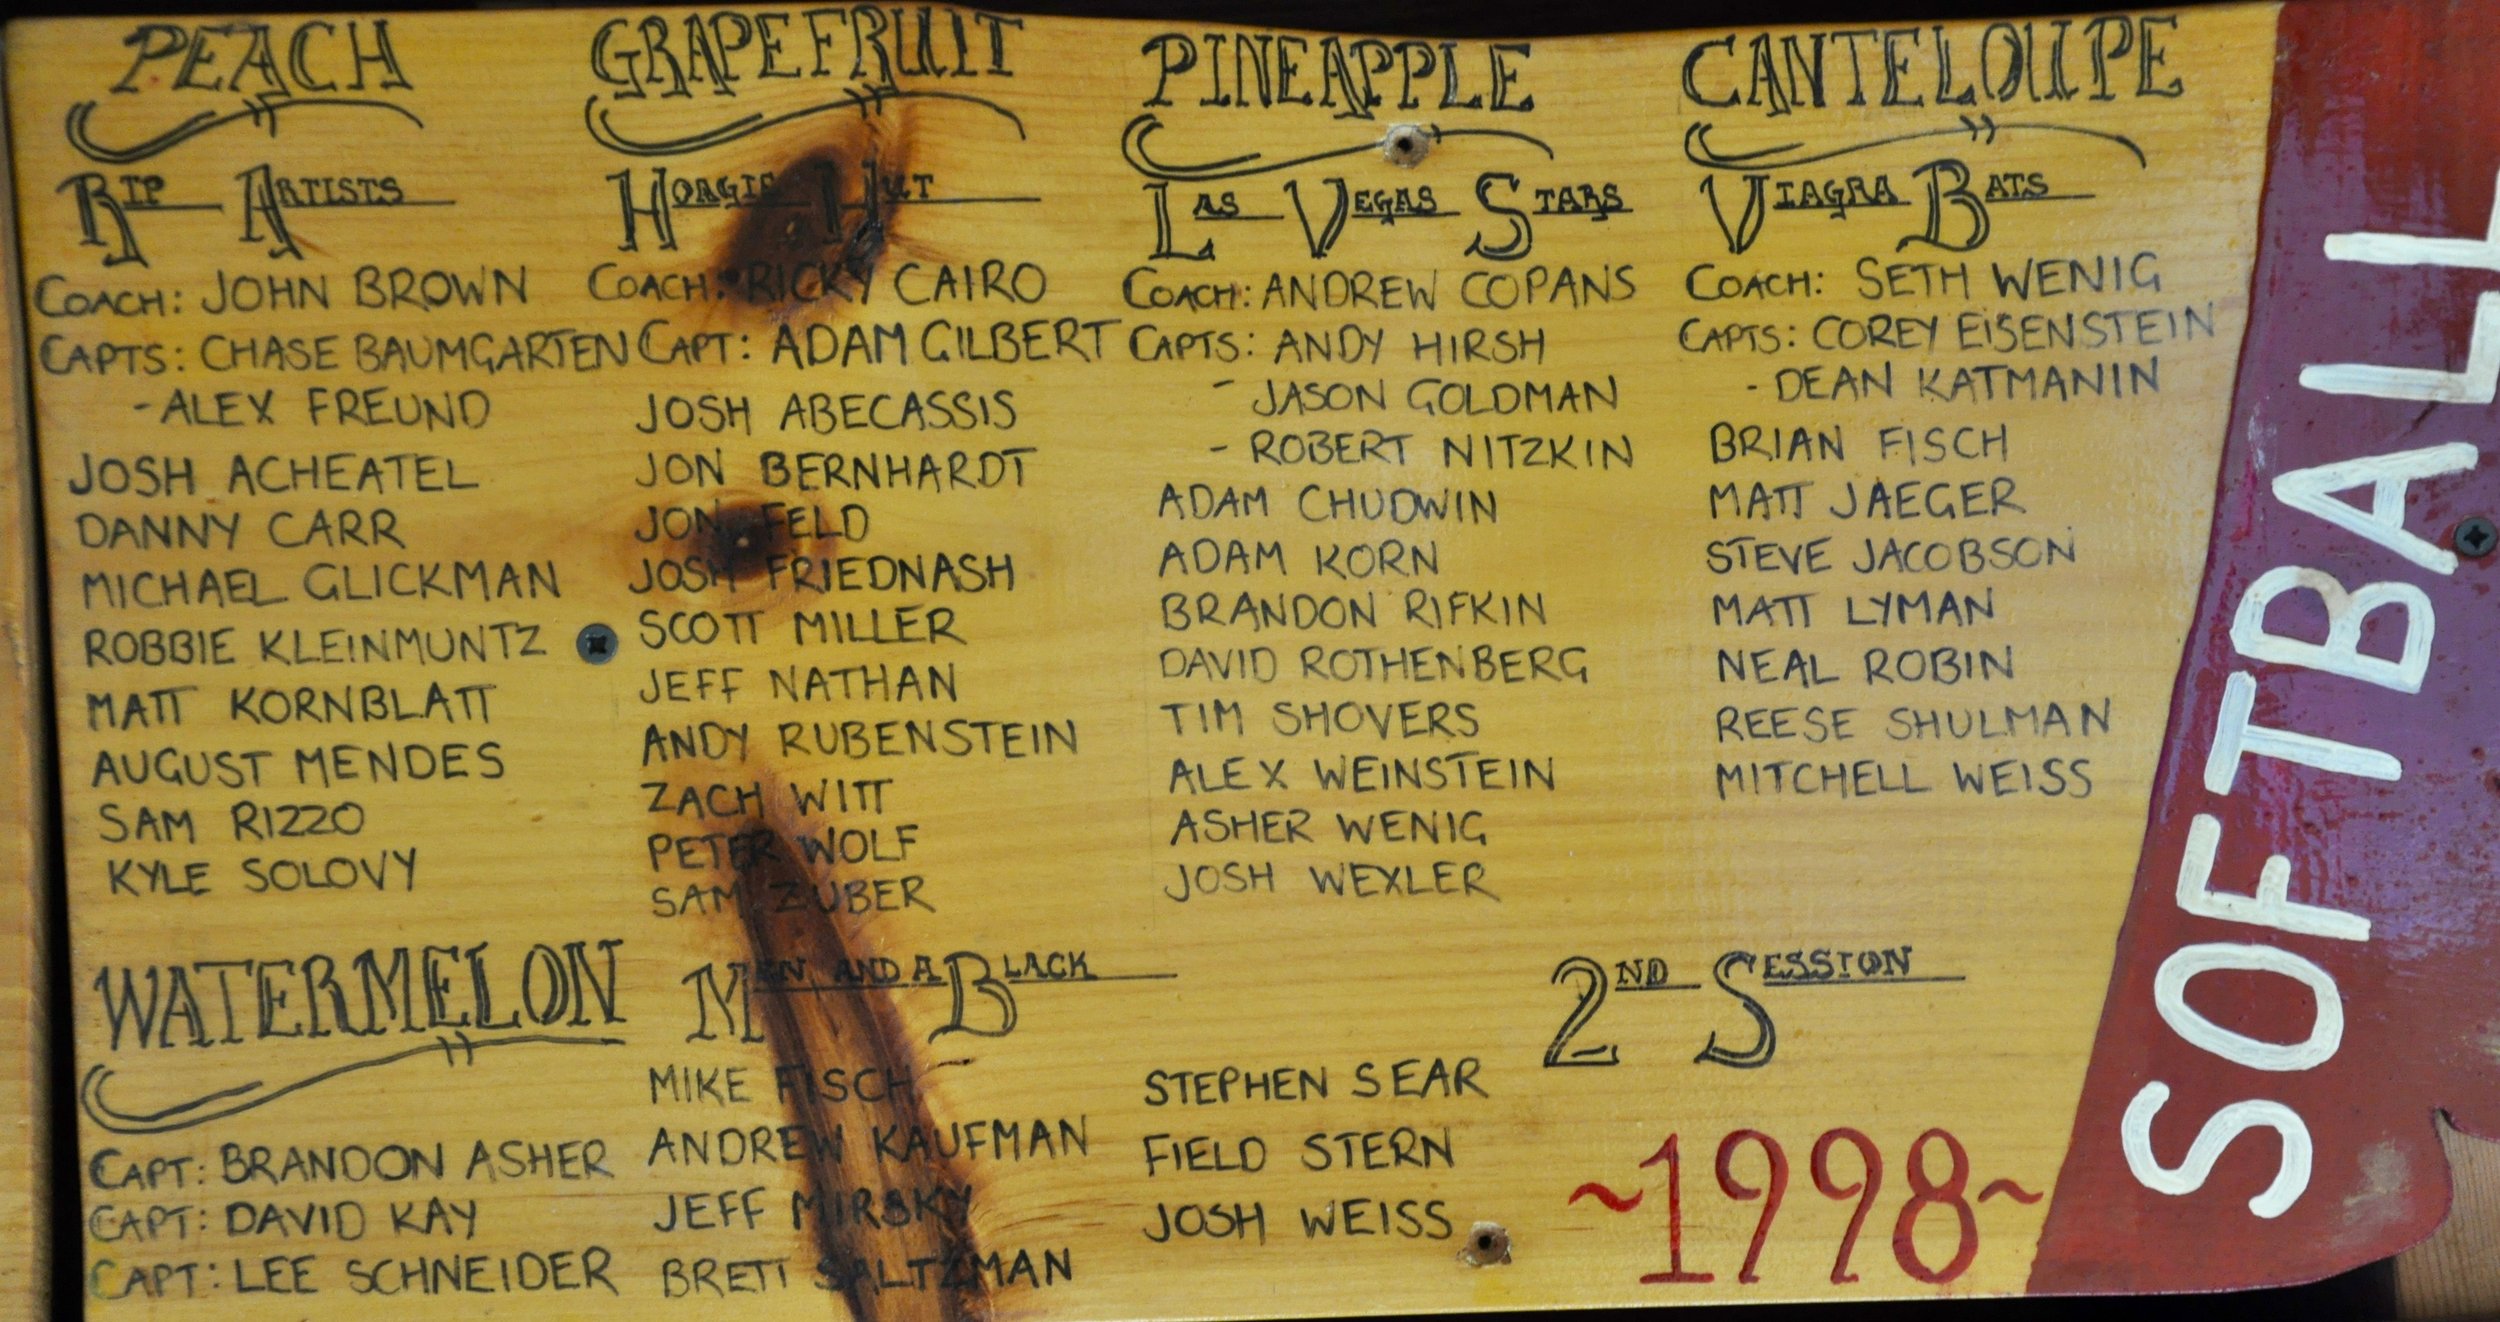 PEACH
RIP ARTISTS
COACH: JOHN BROWN
CAPTS: CHASE BAUMGARTEN
- ALEX FREUND
JOSH ACHEATEL
DANNY CARR
MICHAEL GLICKMAN
ROBBIE KLEINMUNTZ
MATT KORNBLATT
AUGUST MENDES
SAM RIZZO
KYLE SOLOVY
GRAPEFRUIT
HOAGIE HUT
COACH: RICKY CAIRO
CAPT: ADAM GILBERT
JOSH ABECASSIS
JON BERNHARDT
JON FELD
JOSH FRIEDNASH
SCOTT MILLER
JEFF NATHAN
ANDY RUBENSTEIN
ZACH WITT
PETER WOLF
SAM ZUBER
PINEAPPLE
LAS VEGAS STARS
COACH: ANDREW COPANS
CAPTS: ANDY HIRSH
- JASON GOLDMAN
- ROBERT NITZKIN
ADAM CHUDWIN
ADAM KORN
BRANDON RIFKIN
DAVID ROTHENBERG
TIM SHOVERS
ALEX WEINSTEIN
ASHER WENIG
JOSH WEXLER
CANTELOUPE
VIAGRA BATS
COACH: SETH WENIG
CAPTS: COREY EISENSTEIN
- DEAN KATMANIN
BRIAN FISCH
MATT JAEGER
STEVE JACOBSON
MATT LYMAN
NEAL ROBIN
REESE SHULMAN
MITCHELL WEISS
WATERMELON
MEN AND A BLACK
CAPT: BRANDON ASHER
CAPT: DAVID KAY
CAPT: LEE SCHNEIDER
MIKE FISCH
ANDREW KAUFMAN
JEFF MIRSKY
BRETT SALTZMAN
STEPHEN SEAR
FIELD STERN
JOSH WEISS
2ND SESSION
~1998~
SOFTBALL